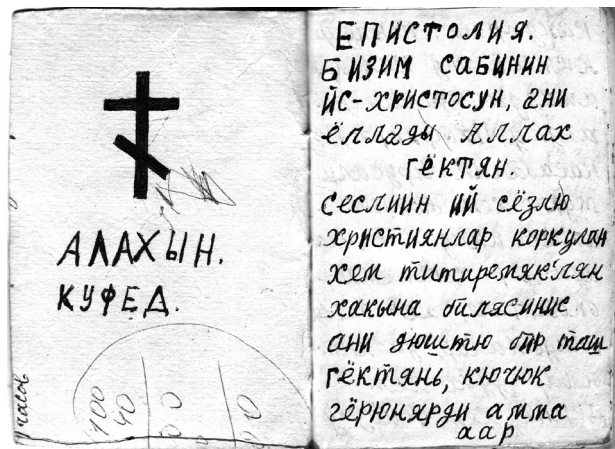 АЛАХЫН.
КУФЕД.
часов
100
40
00
00
ЕПИСТОЛИЯ.
БИЗИМ САБИНИН
ЙС-ХРИСТОСУН, АНИ
ЁЛЛАДЫ АЛЛАХ
ГЁКТЯН.
СЕСЛИИН ИЙ СЁЗЛЮ
християнлар коркулан
хем титиремяклян
хакына билясинис
ани дюштю бир таш
гёктянь, кючюк
гёрюнярди амма
аар